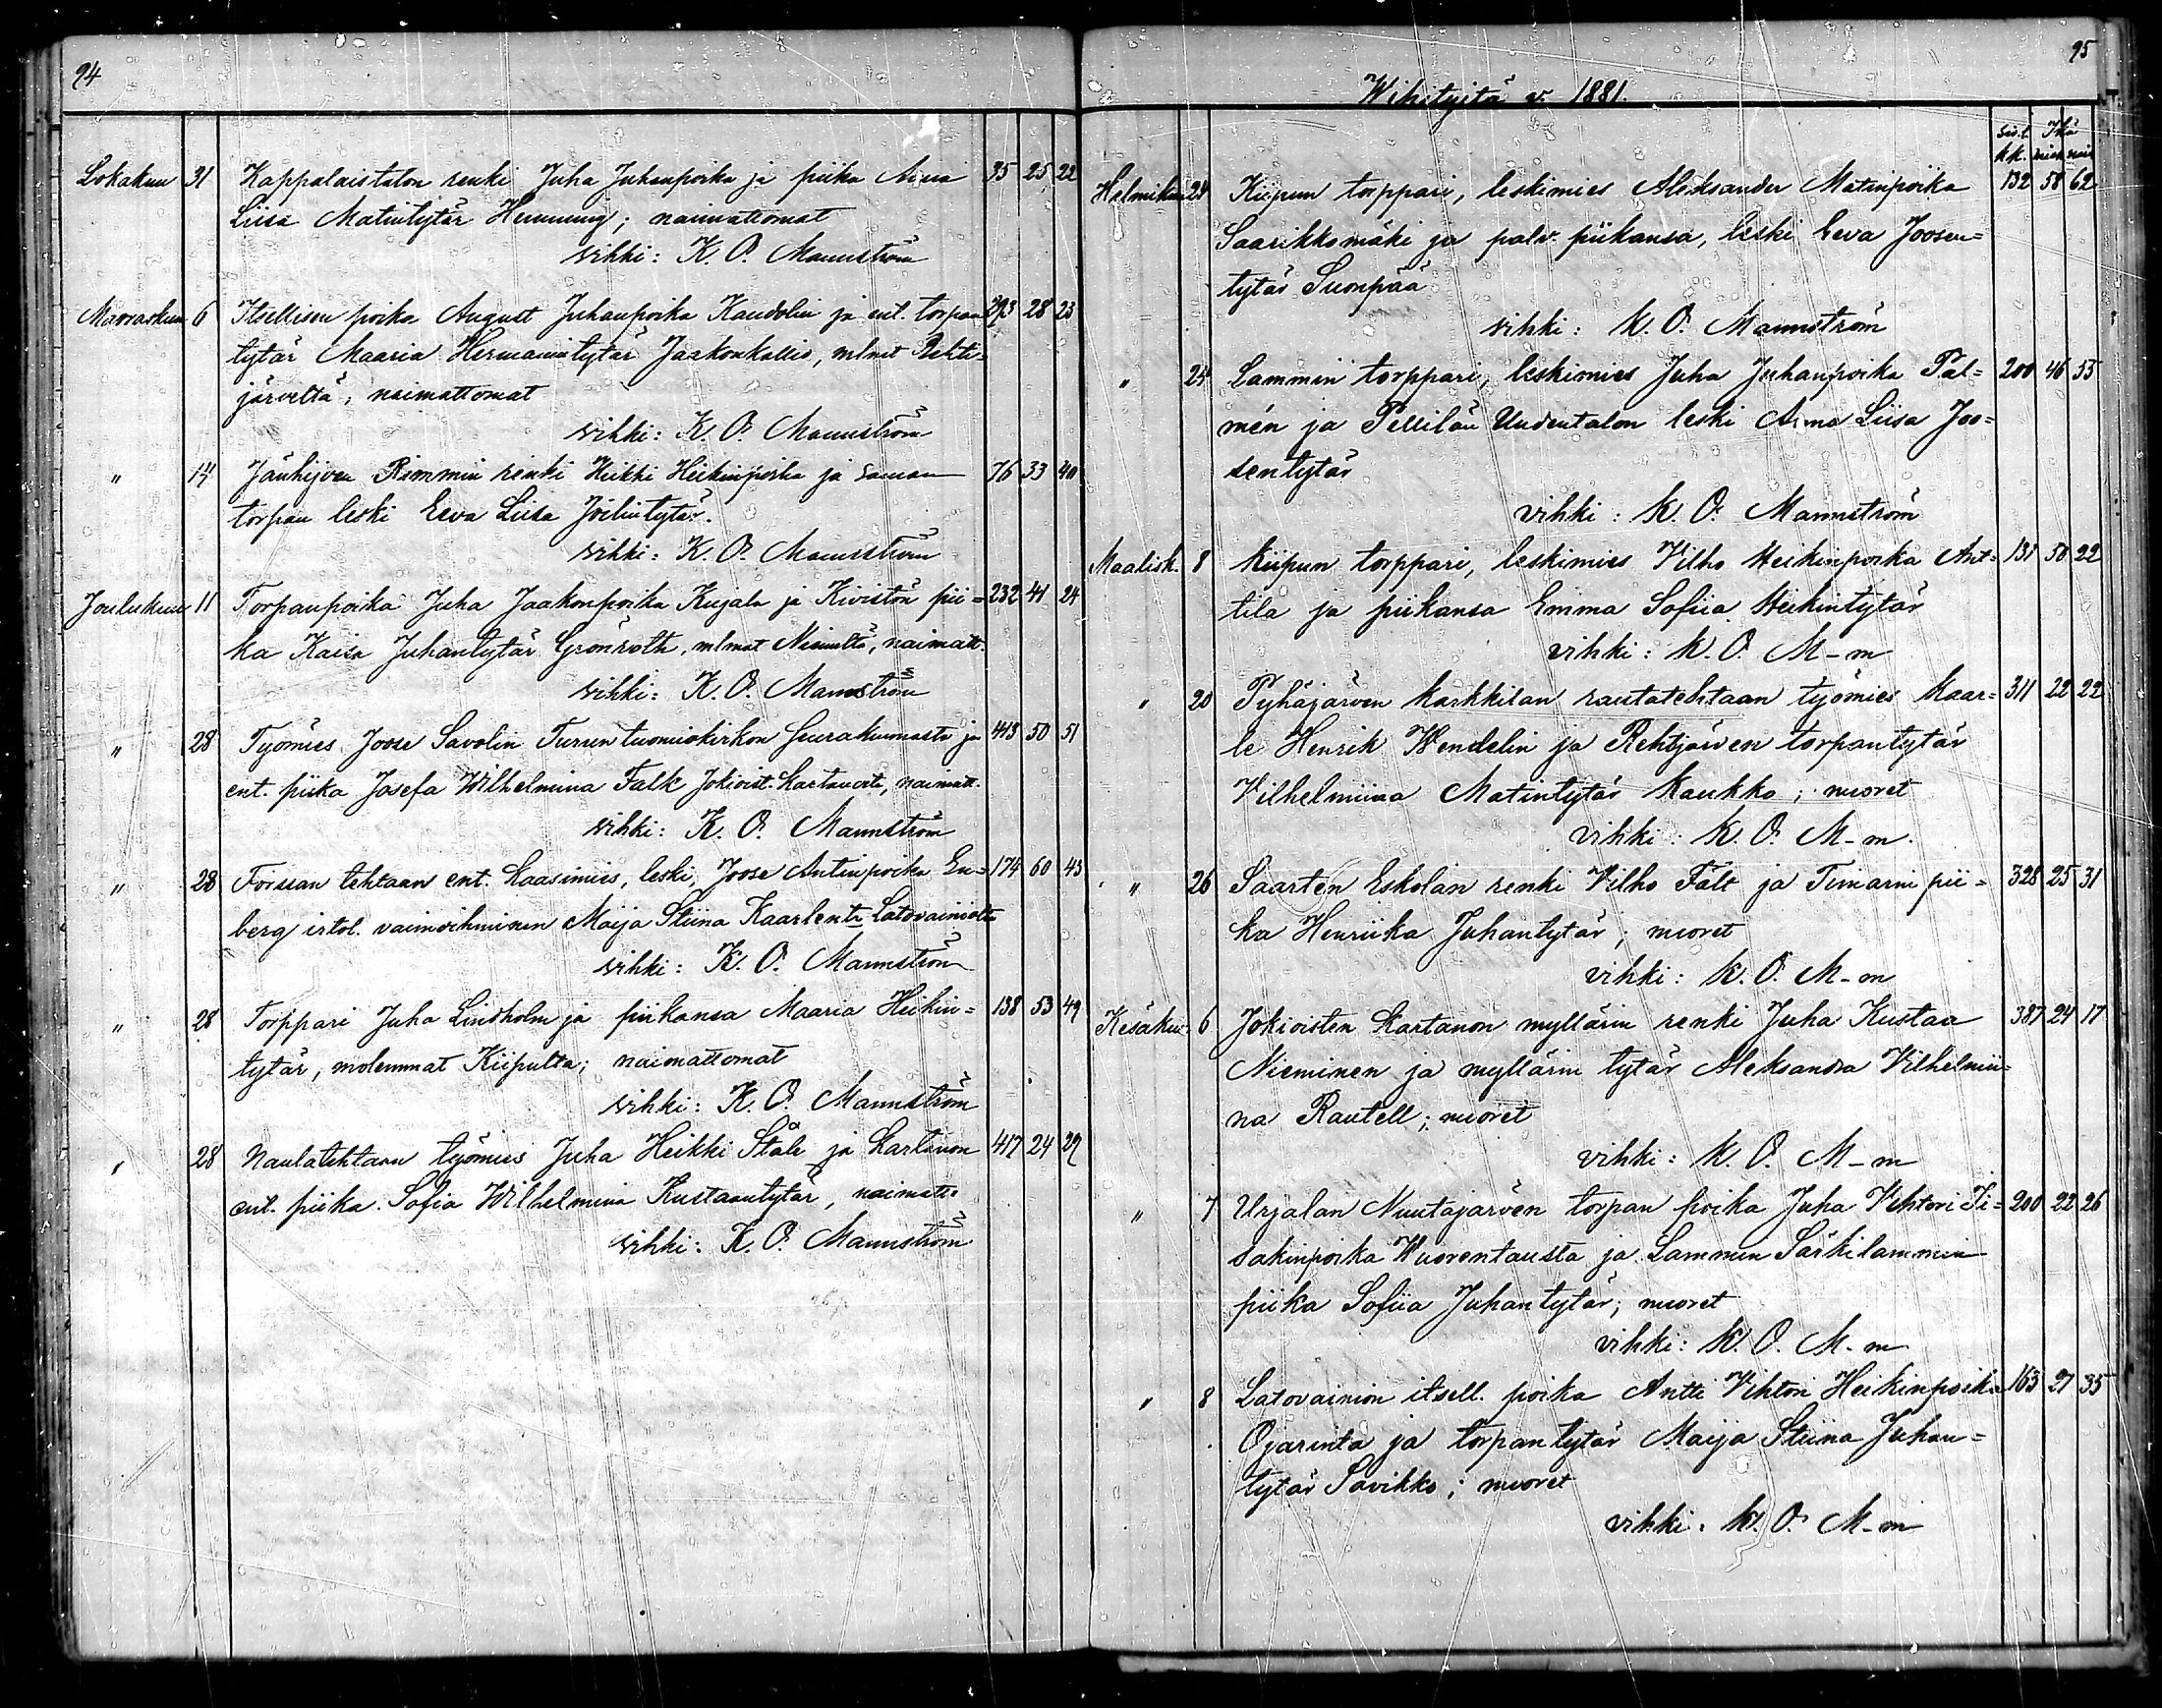 94
Lokakuu 31 Kappalaistalon renki Juha Juhanpoika ja piika Anna 35 25 22
Liisa Matintytär Hemming; naimattomat
vihki: K. O. Mannström
Marraskuu 6 Itsellisen poika August Juhanpoika Kandolin ja ent. torpan 293 28 23
tytär Maaria Hermanintytär Jaakonkallio, mlmt Rehti-
järveltä; naimattomat
vihki: K. O. Mannström
" 14 Jänhijoen Rimmin renki Heikki Heikinpoika ja saman 76 33 40
torpan leski Eeva Liisa Joelintytär.
vihki: K. O. Mannström
Joulukuu 11 Torpanpoika Juha Jaakonpoika Kujala ja Kivistön pii- 232 41 24
ka Kaisa Juhantytär Grönroth, mlmat Niinilta, naimatt.
vihki: K. O. Mannström
" 28 Työmies Joose Savolin Turun tuomiokirkon Seurakunnasta ja 443 50 51
ent. piika Josefa Wilhelmina Falk Jokioist. kartanosta, naimatt.
vihki: K. O. Mannström
" 28 Forssan tehtaan ent. kaasimies, leski, Joose Antinpoika En- 174 60 43
berg irtol. vaimoihminen Maija Stiina Kaarlentr Latovainiolta
vihki: K. O. Mannström
" 28 Torppari Juha Lindholm ja piikansa Maaria Heikin- 138 53 49
tytär, molemmat Kiipulta; naimattomat
vihki: K. O. Mannström
" 28 Naulatehtaan työmies Juha Heikki Ståle ja kartanon 417 24 29
ent. piika Sofia Wilhelmina Kustaantytär, naimatt.
vihki: K. O. Mannström
95
Wihityitä v. 1881.
siv. l. Ikä
kk. mieh. nais
Helmikuu 24 Kiipun torppari, leskimies Aleksander Matinpoika 132 58 62
Saarikkomäki ja palv. piikansa, leski Eeva Joosen-
tytär Suonpää
vihki: K. O. Mannström
" 24 Lammin torppari, leskimies Juha Juhanpoika Pal- 200 46 53
mén ja Pellilän Uudentalon leski Anna Liisa Joo-
sentytär
vihki: K. O. Mannström
Maalisk. 8 Kiipun torppari, leskimies Vilho Heikinpoika Ant- 131 50 22
tila ja piikansa Emma Sofiia Heikintytär
vihki: K. O. M-m
" 20 Pyhäjärven Karkkilan rautatehtaan työmies Kaar- 311 22 22
le Henrik Wendelin ja Rehtijärven torpantytär
Vilhelmiina Matintytär Kaukko; nuoret
vihki: K. O. M-m.
" 26 Saarten Eskolan renki Vilho Fält ja Tinarni pii- 328 25 31
ka Henriika Juhantytär; nuoret
vihki: K. O. M-m
Kesäkuu 6 Jokioisten kartanon myllärin renki Juha Kustaa 387 24 17
Nieminen ja myllärin tytär Aleksandra Vilhelmii-
na Rautell; nuoret
vihki: K. O. M-m
" 7 Urjalan Nuutajärven torpan poika Juha Vihtori Ii- 200 22 26
sakinpoika Wuorentausta ja Lammin Särkilammin
piika Sofiia Juhantytär; nuoret
vihki: K. O. M-m
" 8 Latovainion itsell. poika Antti Vihtori Heikinpoika 163 27 35
Ojarinta ja torpantytär Maija Stiina Juhan-
tytär Savikko; nuoret
vihki: K. O. M-m